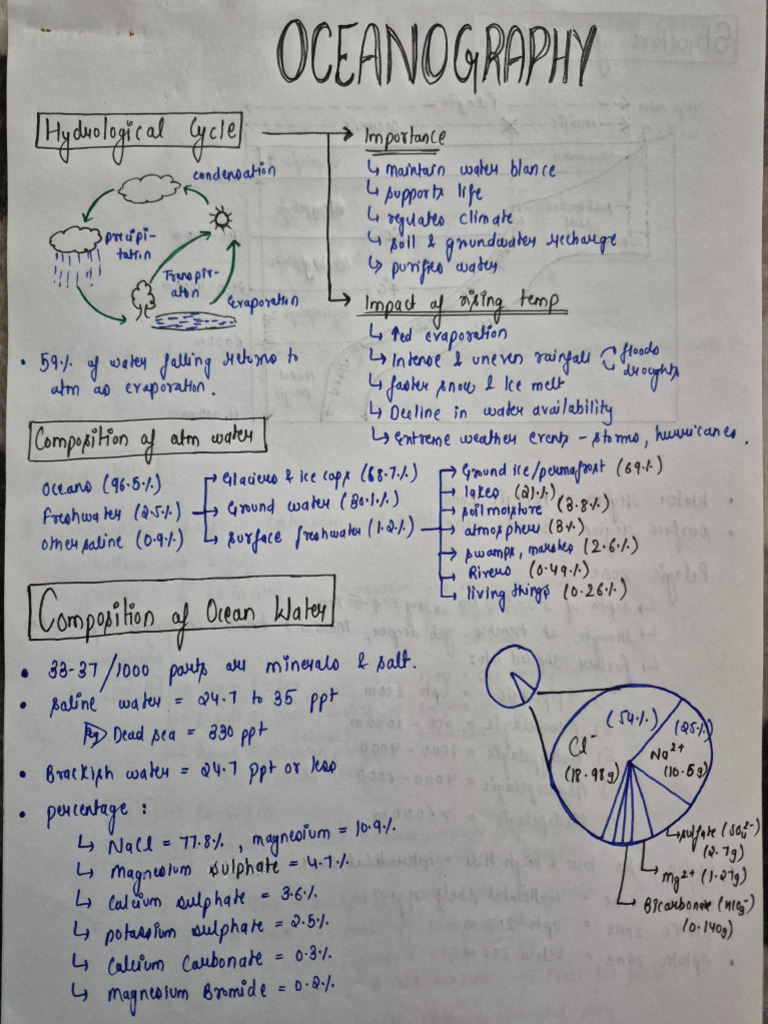 OCEANOGRAPHY
Hydrological Cycle
condensation
precipi-
tation
Transpir-
aton
Evaporation
• 59% of water falling returns to
atm as evaporation.
Importance
↳ maintain water blance
↳ supports life
↳ regulates climate
↳ soil & groundwater recharge
↳ purifies water
Impact of rising temp
↳ ↑ed evaporation
↳ Intense & uneven rainfall
floods
droughts
↳ faster snow & Ice melt
↳ Decline in water availability
↳ Extreme weather events - storms, hurricanes.
Composition of atm water
Oceans (96.5%)
Freshwater (2.5%)
Other saline (0.9%)
Glaciers & ice caps (68.7%)
Ground water (30.1%)
surface freshwater (1.2%)
Ground ice/permafrost (69%)
lakes (21%)
soil moisture (3.8%)
atmosphere (3%)
swamps, marshes (2.6%)
Rivers (0.49%)
living things (0.26%)
Composition of Ocean Water
• 33-37/1000 parts are minerals & salt.
• saline water = 24.7 to 35 ppt
Eg Dead sea = 330 ppt
• Brackish water = 24.7 ppt or less
• percentage :
↳ NaCl = 77.8%, magnesium = 10.9%
↳ Magnesium sulphate = 4.7%
↳ Calcium sulphate = 3.6%
↳ potassium sulphate = 2.5%
↳ Calcium Carbonate = 0.3%
↳ Magnesium Bromide = 0.2%
(54%)
Cl⁻
(18.98g)
(25%)
Na²⁺
(10.5g)
sulfate (SO₄²⁻)
(2.7g)
Mg²⁺ (1.27g)
Bicarbonate (HCO₃⁻)
(0.140g)